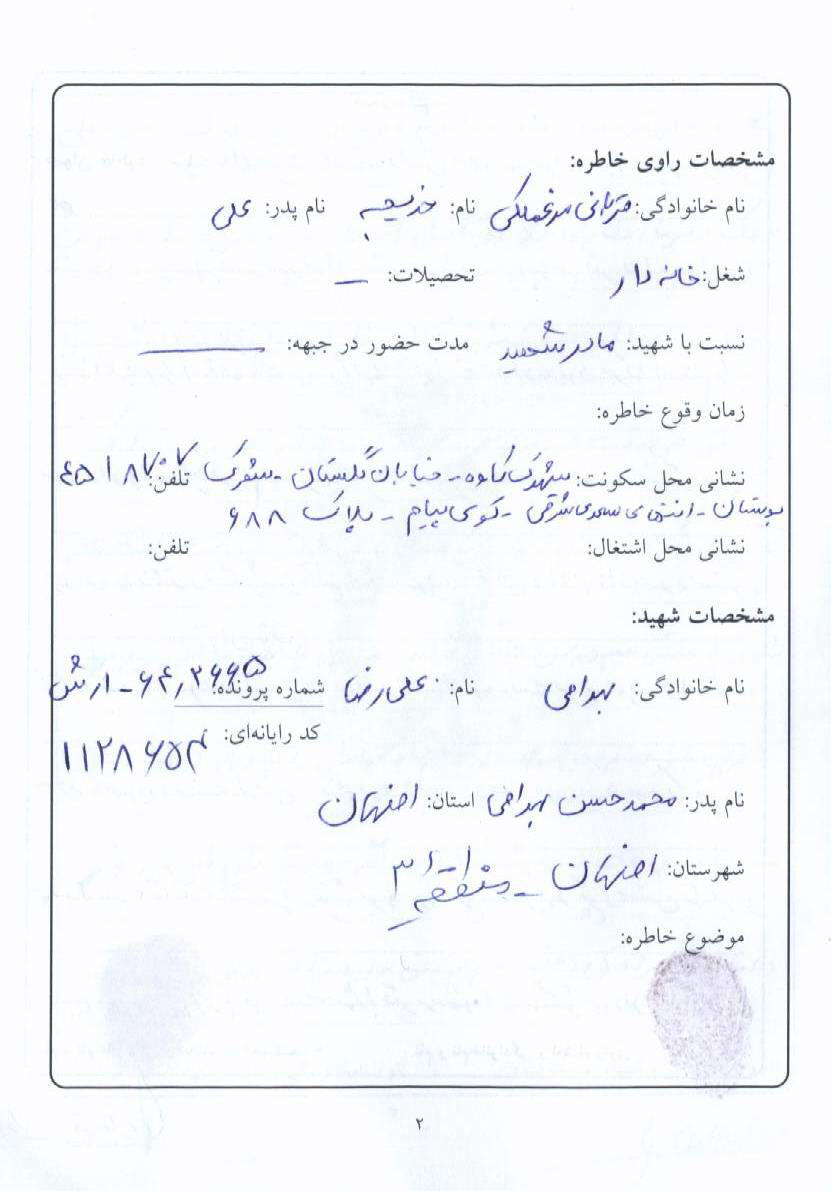 مشخصات راوی خاطره:
نام خانوادگی: قربانی مرغملکی نام: خدیجه نام پدر: علی
شغل: خانه دار تحصیلات: —
نسبت با شهید: مادر شهید مدت حضور در جبهه: ——
زمان وقوع خاطره:
نشانی محل سکونت: شهرک کاوه - خیابان گلستان - شهرک تلفن: ۴۵۱۸۷۰۷
بوستان - انتهای سعدی شرقی - کوی پیام - پلاک ۶۸۸
نشانی محل اشتغال: تلفن:
مشخصات شهید:
نام خانوادگی: بهرامی نام: علی رضا شماره پرونده: ۶۴٫۲۶۶۵ - ارتش
کد رایانه‌ای: ۱۱۲۸۶۵۴
نام پدر: محمد حسن بهرامی استان: اصفهان
شهرستان: اصفهان - منطقه ۳
موضوع خاطره:
۲